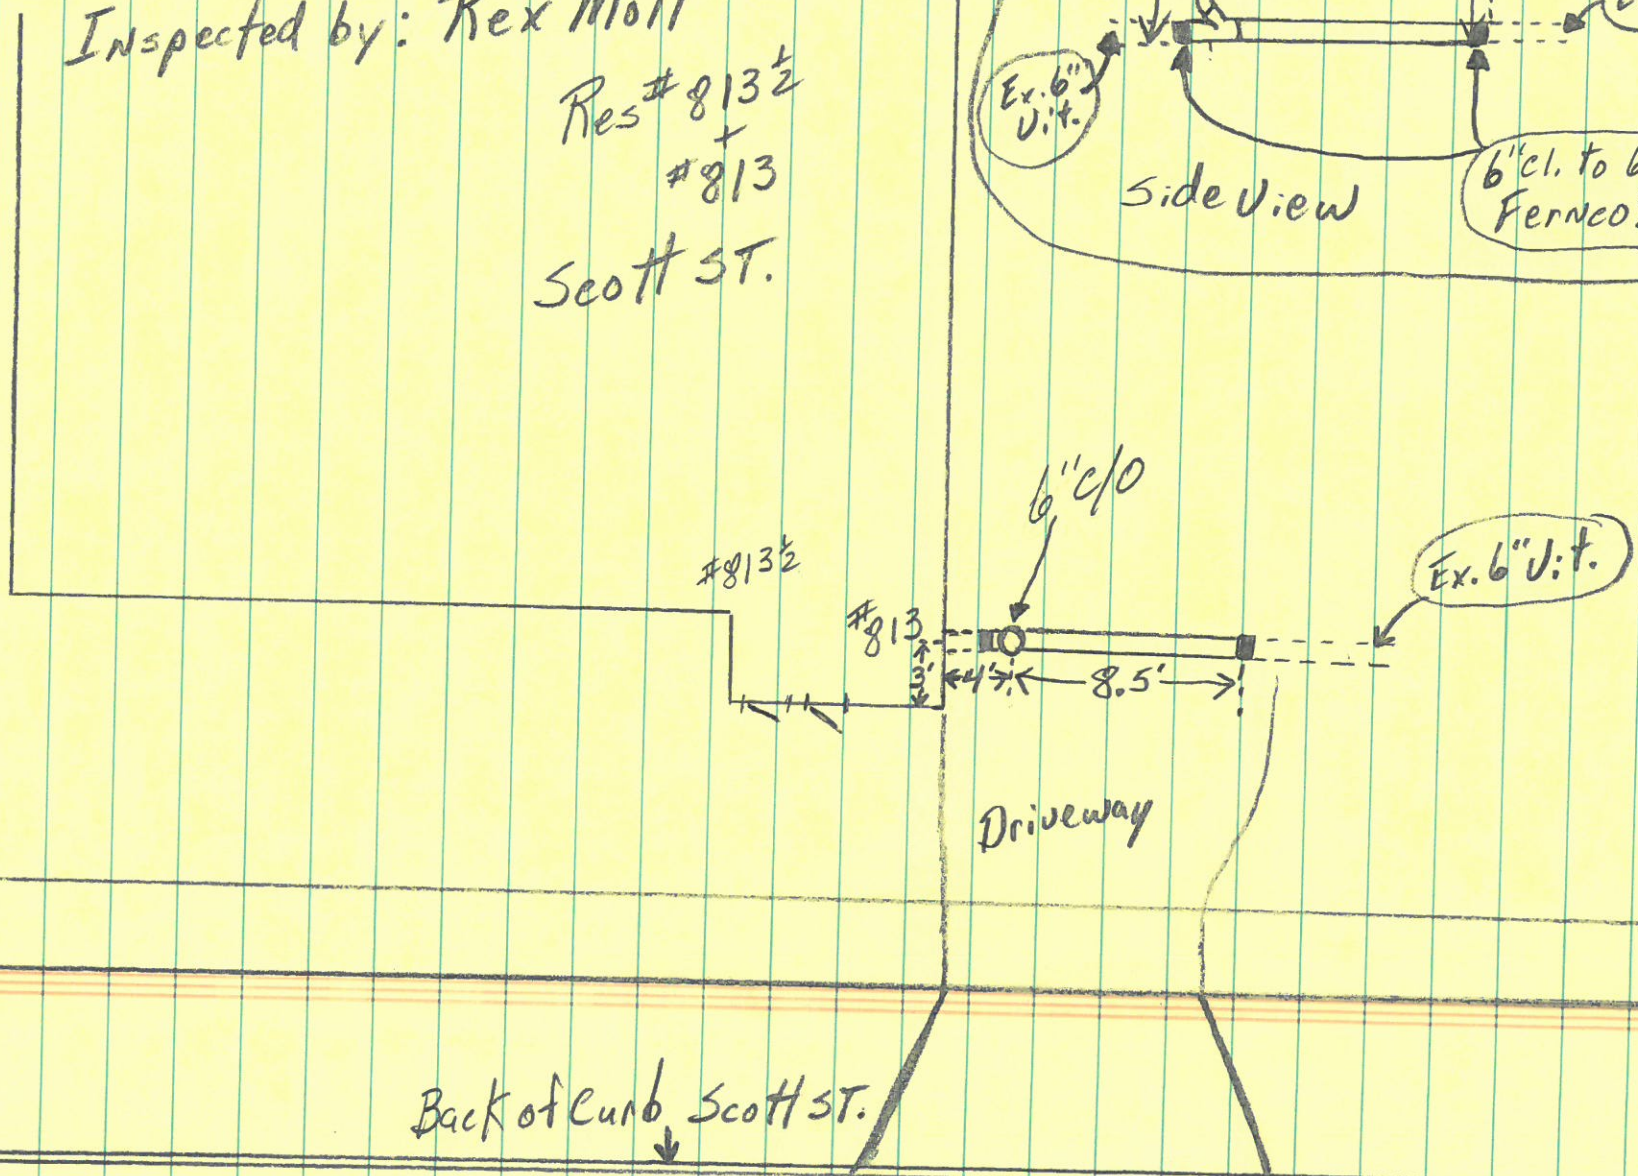 Inspected by: Rex Moll
Res # 813 ½
+
#813
Scott ST.
Ex. 6"
Vit.
Side View
6" cl. to 6
Fernco.
6" C/O
Ex. 6" Vit.
#813 ½
#813
3'
4'
8.5'
Driveway
Back of Curb Scott ST.